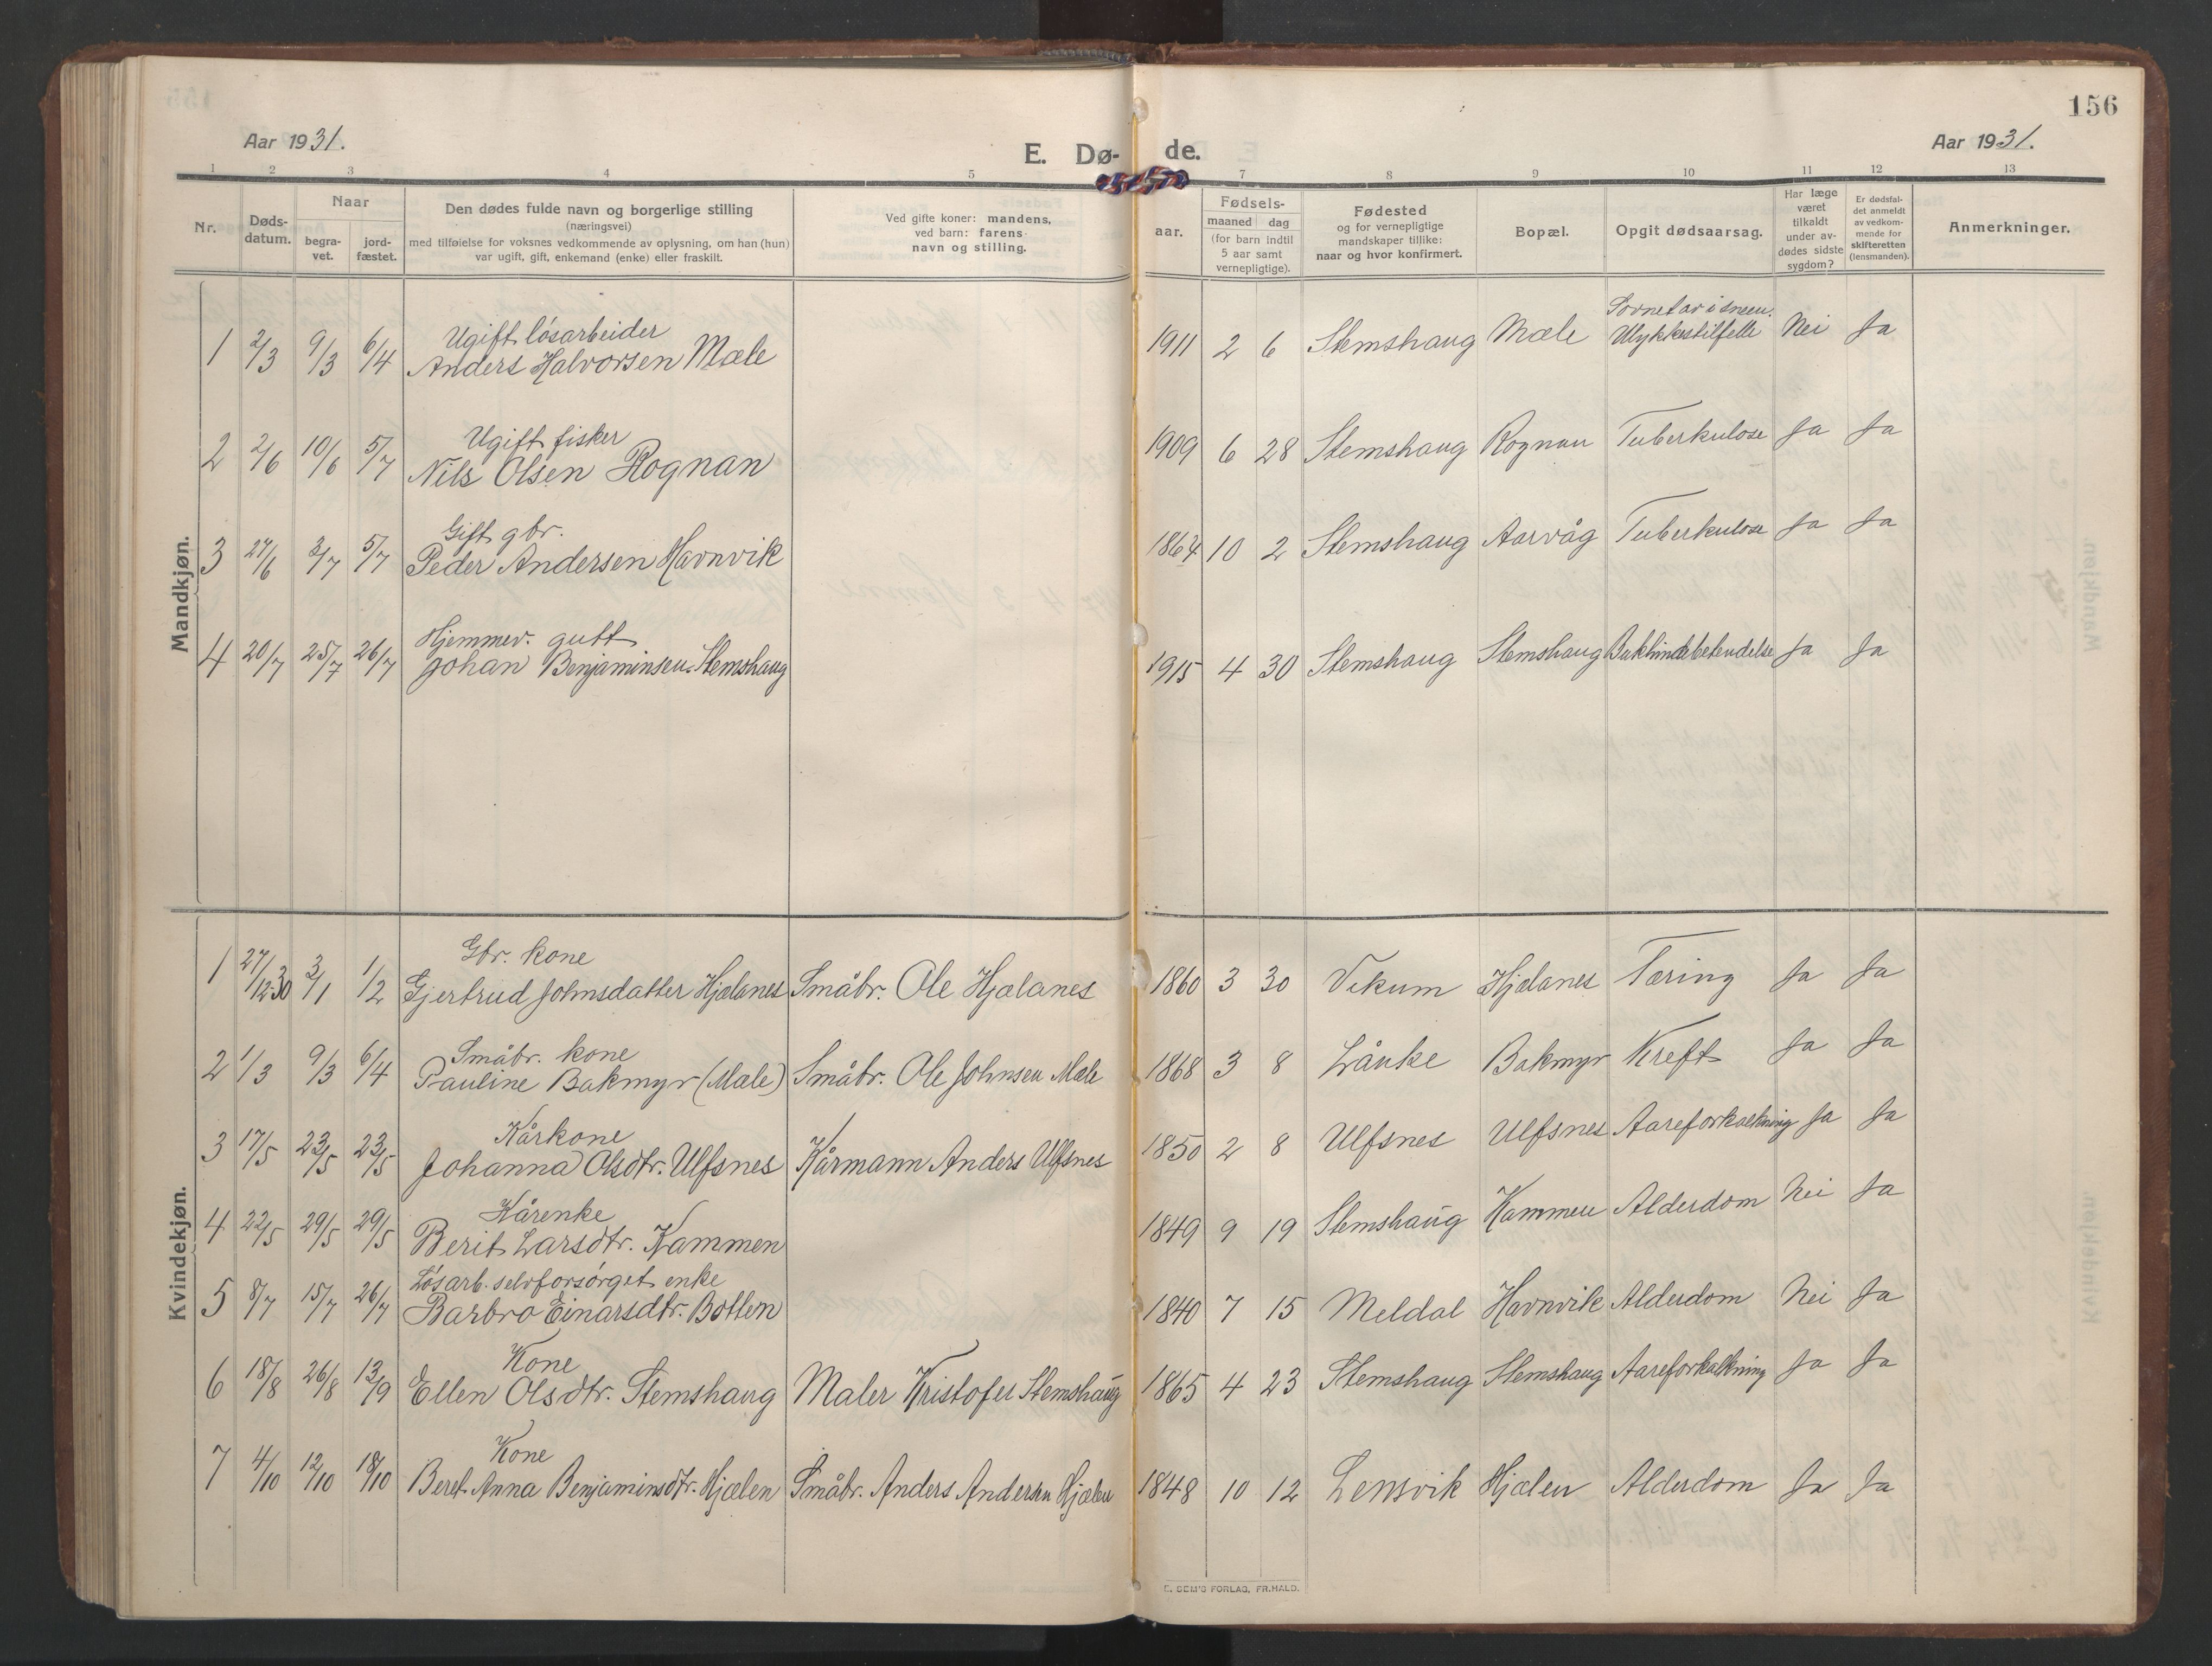 156
Aar 1931.
E. Dø- de.
Aar 1931.
1 2 3 4 5 7 8 9 10 11 12 13
Nr.
Døds-
datum.
Naar
begra-
vet.
jord-
fæstet.
Den dødes fulde navn og borgerlige stilling
(næringsvei)
med tilføielse for voksnes vedkommende av oplysning, om han (hun)
var ugift, gift, enkemand (enke) eller fraskilt.
Ved gifte koner: mandens,
ved barn: farens
navn og stilling.
aar.
Fødsels-
maaned dag
(for barn indtil
5 aar samt
vernepligtige).
Fødested
og for vernepligtige
mandskaper tillike:
naar og hvor konfirmert.
Bopæl.
Opgit dødsaarsag.
Har læge
været
tilkaldt
under av-
dødes sidste
sygdom?
Er dødsfal-
det anmeldt
av vedkom-
mende for
skifteretten
(lensmanden).
Anmerkninger.
Mandkjøn.
Ugift løsarbeider
1 2/3 9/3 6/4 Anders Halvorsen Mæle 1911 2 6 Stemshaug Mæle Sovnet av i sneen. Ulykkestilfelle Nei Ja
Ugift fisker
2 2/6 10/6 5/7 Nils Olsen Rognan 1909 6 28 Stemshaug Rognan Tuberkulose Ja Ja
Gift gbr.
3 27/6 3/7 5/7 Peder Andersen Havnvik 1864 10 2 Stemshaug Aarvåg Tuberkulose Ja Ja
Hjemmev. gutt
4 20/7 25/7 26/7 Johan Benjaminsen Stemshaug 1915 4 30 Stemshaug Stemshaug Bukhindebetendelse Ja Ja
Kvindekjøn.
Gbr. kone
1 27/12-30 3/1 1/2 Gjertrud Johnsdatter Hjælanes Småbr. Ole Hjælanes 1860 3 30 Vikum Hjælanes Tæring Ja Ja
Småbr. kone
2 1/3 9/3 6/4 Pauline Bakmyr (Mæle) Småbr. Ole Johnsen Mæle 1868 3 8 Lånke Bakmyr Kreft Ja Ja
Kårkone
3 17/5 23/5 23/5 Johanna Olsdtr. Ulfsnes Kårmann Anders Ulfsnes 1850 2 8 Ulfsnes Ulfsnes Aareforkalkning Ja Ja
Kårenke
4 22/5 29/5 29/5 Berit Larsdtr. Kammen 1849 9 19 Stemshaug Kammen Alderdom Nei Ja
Løsarb. selvforsørget enke
5 8/7 15/7 26/7 Barbro Einarsdtr. Botten 1840 7 15 Meldal Havnvik Alderdom Nei Ja
Kone
6 18/8 26/8 13/9 Ellen Olsdtr. Stemshaug Maler Kristofer Stemshaug 1865 4 23 Stemshaug Stemshaug Aareforkalkning Ja Ja
Kone
7 4/10 12/10 18/10 Beret Anna Benjaminsdtr. Hjælen Småbr. Anders Andersen Hjælen 1848 10 12 Lensvik Hjælen Alderdom Ja Ja
E. SEM'S FORLAG, FR.HALD.